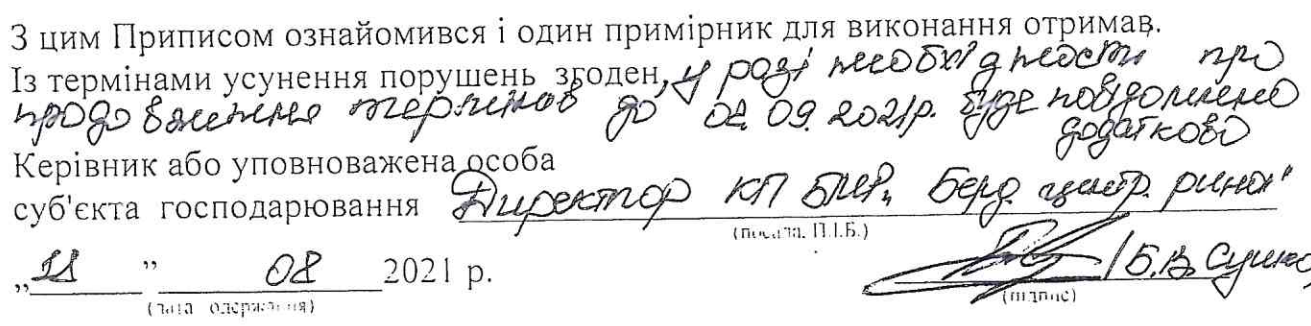 З цим Приписом ознайомився і один примірник для виконання отримав.
Із термінами усунення порушень згоден, у разі необхідности про
продовження термінов до 02.09.2021р. буде повідомлено
додатково
Керівник або уповноважена особа
суб'єкта господарювання Директор КП БМР „Берд. центр. ринок"
(посада, П.І.Б.)
„11" 08 2021 р. / Б.В.
(дата одержання) (підпис)